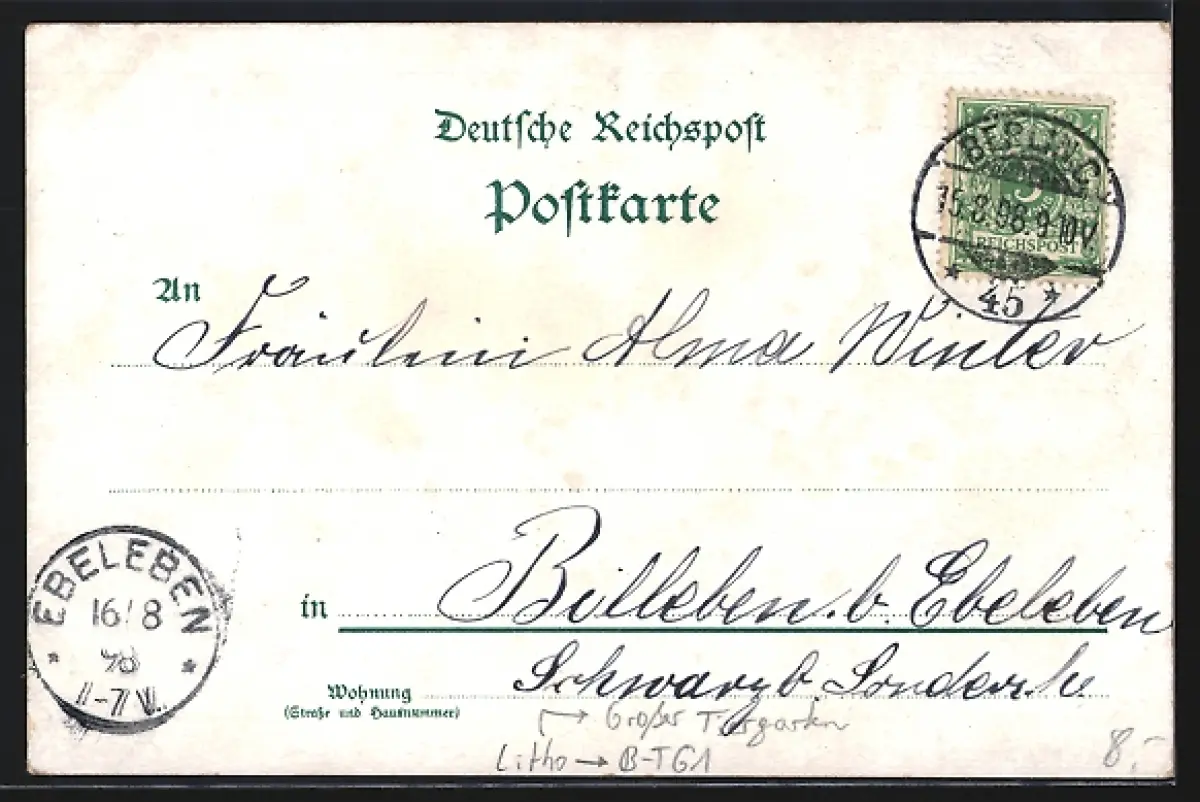 Deutsche Reichspost
Postkarte
BERLIN, C.
15.8.98.9-10V.
REICHSPOST
* 45 *
An
Fräulein Alma Winter
EBELEBEN
16/8
98
7V.
in Billeben. b. Ebeleben
Schwarzb. Sondersh.
Wohnung
(Straße und Hausnummer)
Großer Tiergarten
Litho → B-TG1
8.-